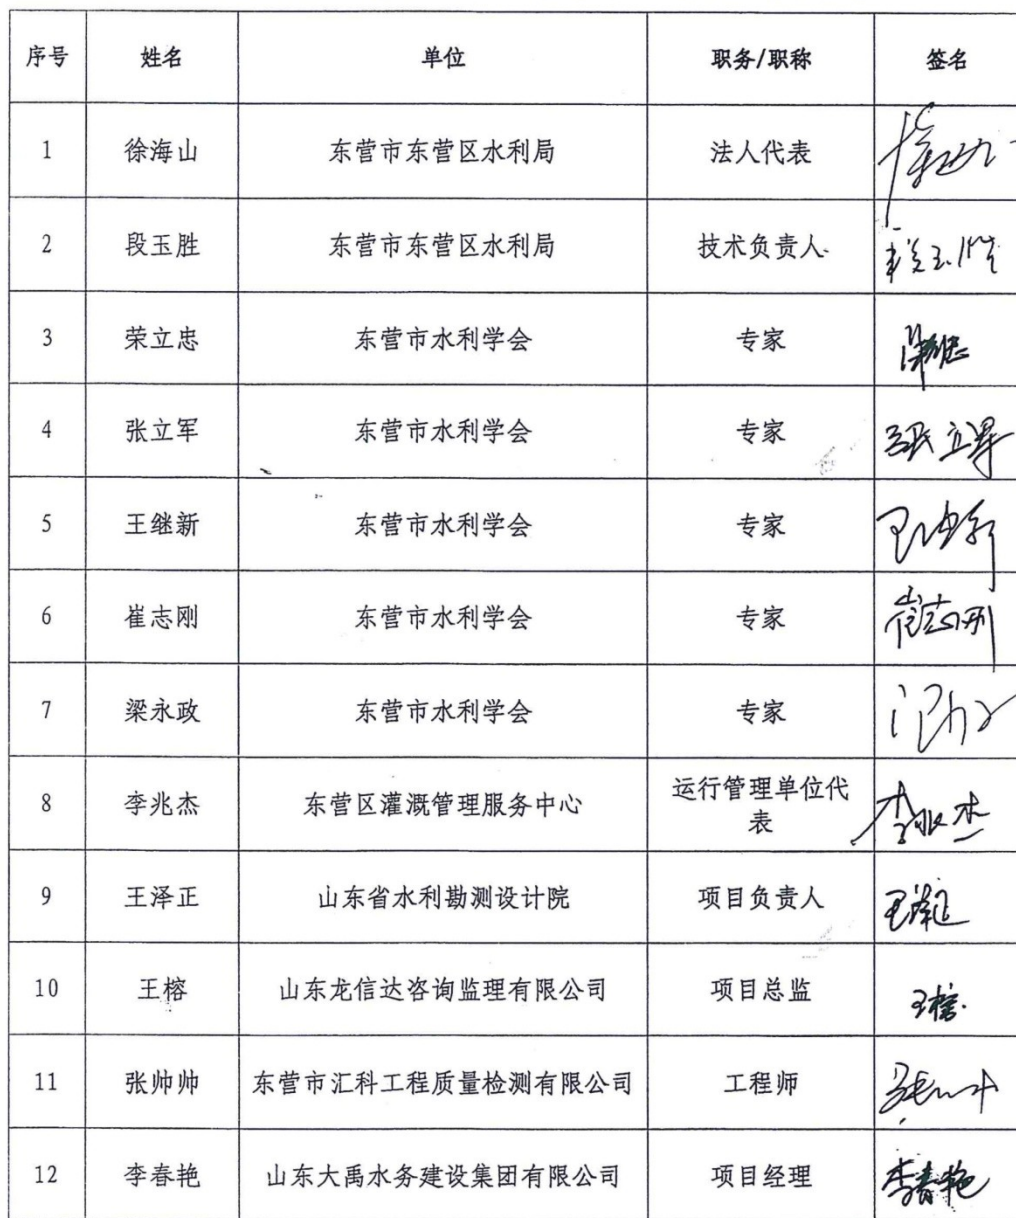 序号 姓名 单位 职务/职称 签名
1 徐海山 东营市东营区水利局 法人代表
2 段玉胜 东营市东营区水利局 技术负责人 段玉胜
3 荣立忠 东营市水利学会 专家
4 张立军 东营市水利学会 专家 张立军
5 王继新 东营市水利学会 专家 王继新
6 崔志刚 东营市水利学会 专家 崔志刚
7 梁永政 东营市水利学会 专家
8 李兆杰 东营区灌溉管理服务中心 运行管理单位代
表 李兆杰
9 王泽正 山东省水利勘测设计院 项目负责人 王泽正
10 王榕 山东龙信达咨询监理有限公司 项目总监 王榕
11 张帅帅 东营市汇科工程质量检测有限公司 工程师
12 李春艳 山东大禹水务建设集团有限公司 项目经理 李春艳